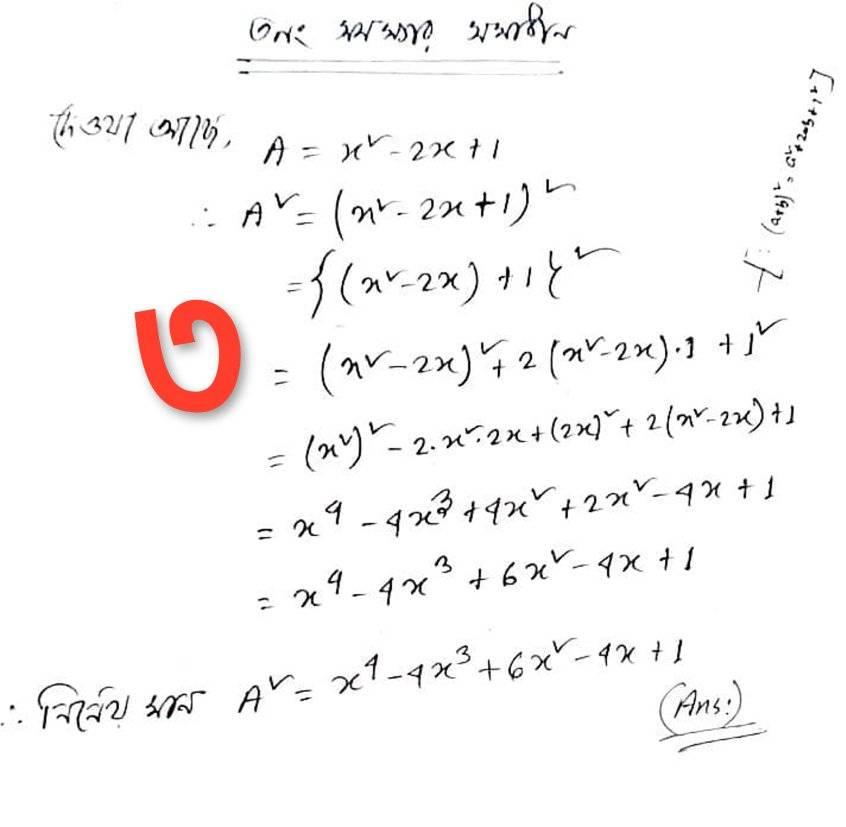 ৩নং সমস্যার সমাধান
দেওয়া আছে, A = x² - 2x + 1
∴ A² = (x² - 2x + 1)²
= {(x² - 2x) + 1}²
[∵ (a+b)² = a² + 2ab + 1²]
৩
= (x² - 2x)² + 2(x² - 2x)·1 + 1²
= (x²)² - 2·x²·2x + (2x)² + 2(x² - 2x) + 1
= x⁴ - 4x³ + 4x² + 2x² - 4x + 1
= x⁴ - 4x³ + 6x² - 4x + 1
∴ নির্ণেয় মান A² = x⁴ - 4x³ + 6x² - 4x + 1
(Ans:)